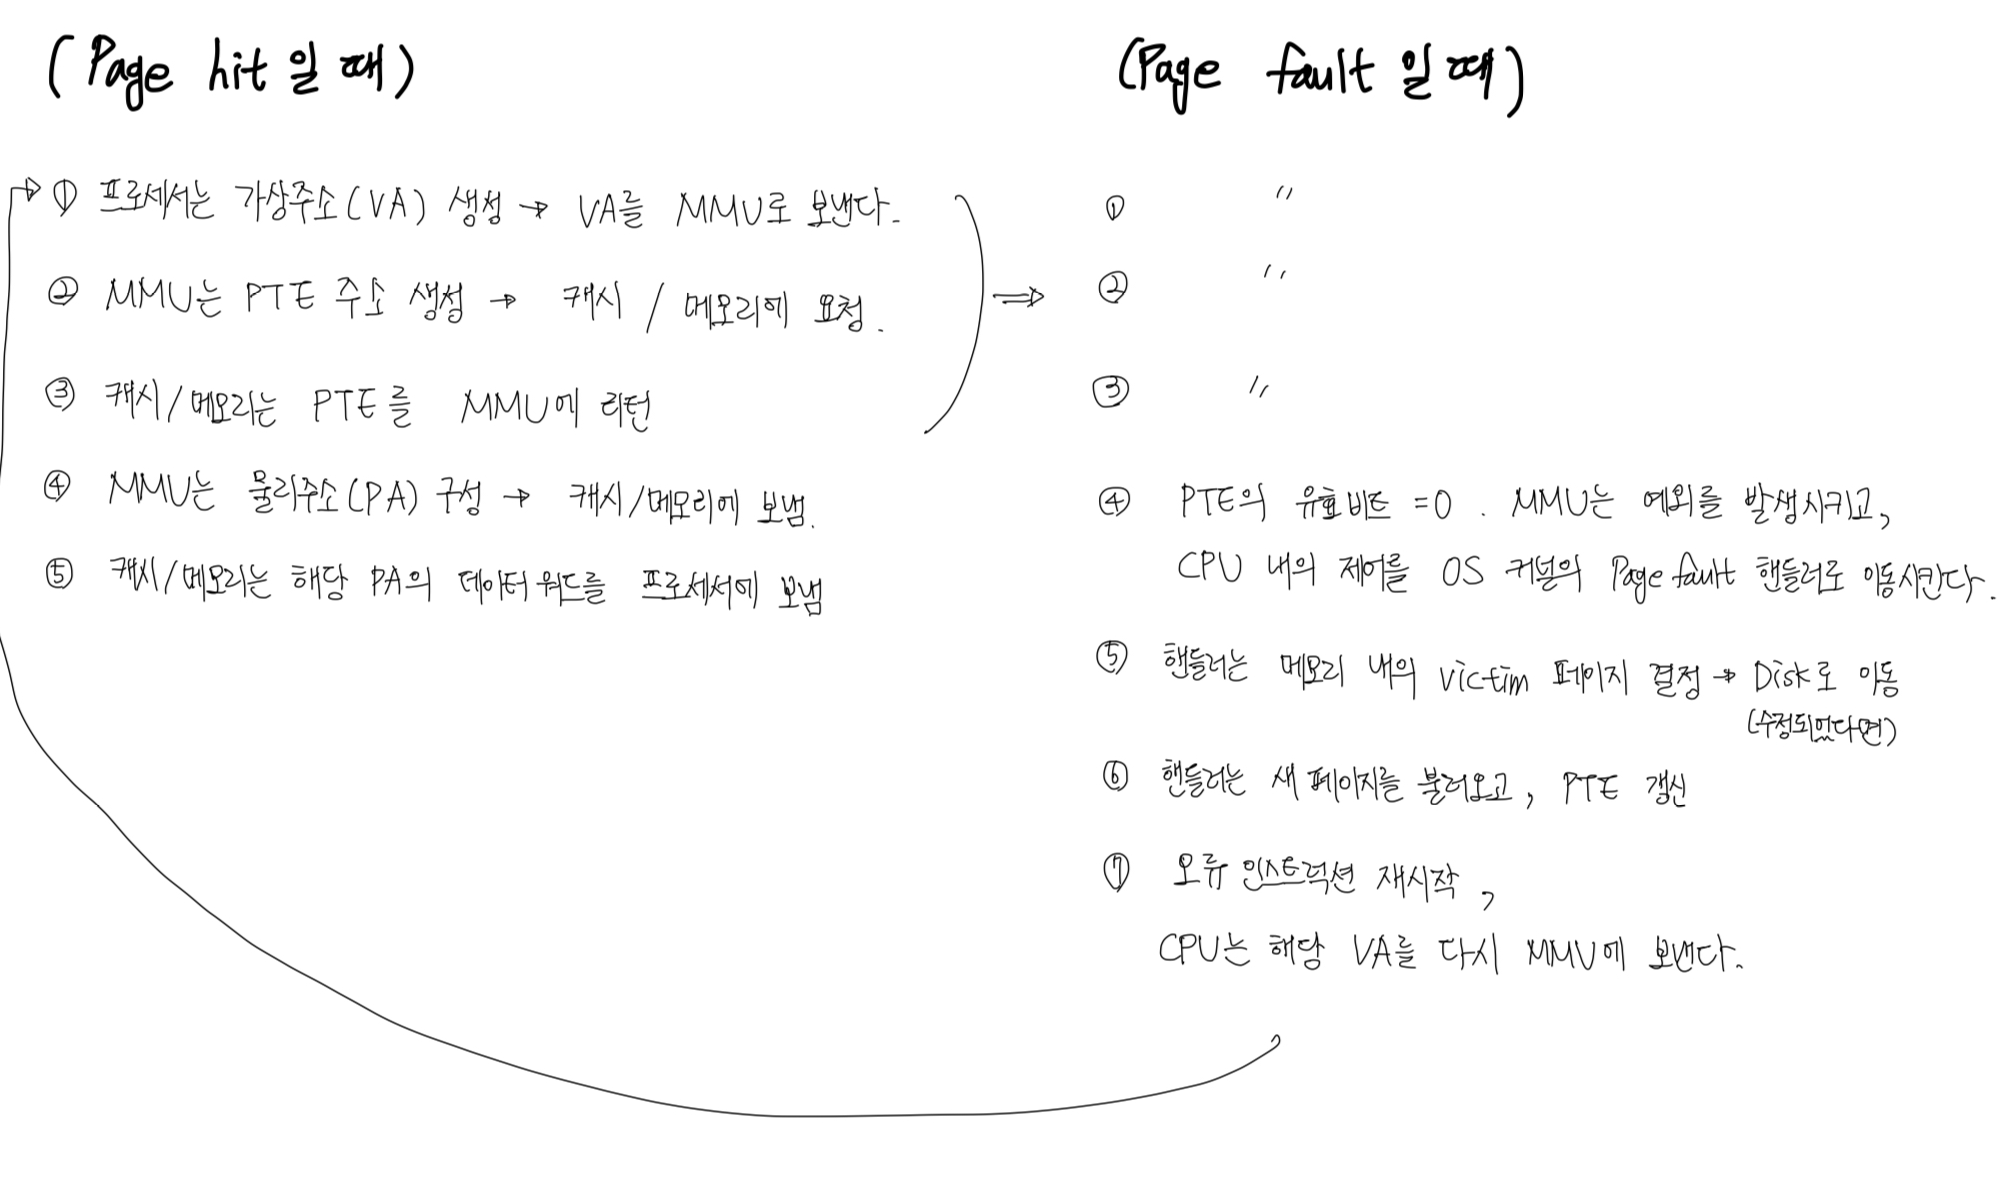 (Page hit 일 때)
① 프로세서는 가상주소(VA) 생성 → VA를 MMU로 보낸다.
② MMU는 PTE 주소 생성 → 캐시 / 메모리에 요청.
③ 캐시/메모리는 PTE를 MMU에 리턴
④ MMU는 물리주소(PA) 구성 → 캐시/메모리에 보냄.
⑤ 캐시/메모리는 해당 PA의 데이터 워드를 프로세서에 보냄
(Page fault 일 때)
① "
② "
③ "
④ PTE의 유효비트 = 0 . MMU는 예외를 발생시키고,
CPU 내의 제어를 OS 커널의 Page fault 핸들러로 이동시킨다.
⑤ 핸들러는 메모리 내의 victim 페이지 결정 → Disk로 이동
(수정되었다면)
⑥ 핸들러는 새 페이지를 불러오고, PTE 갱신
⑦ 오류 인스트럭션 재시작,
CPU는 해당 VA를 다시 MMU에 보낸다.